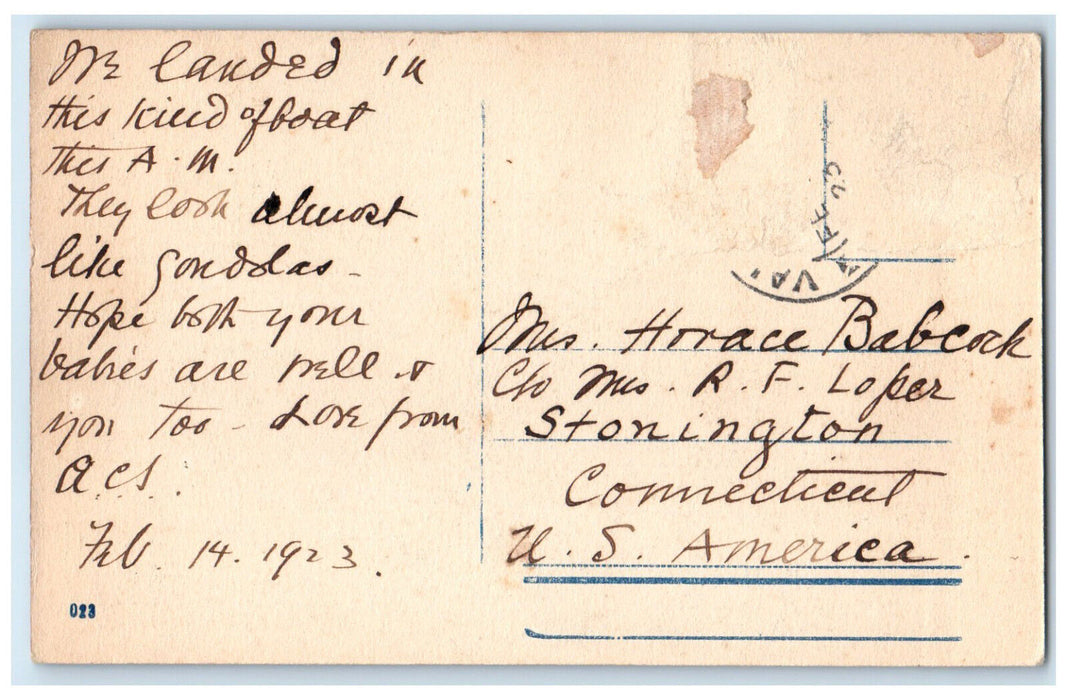 We landed in
this kind of boat
this A.M.
They look almost
like gondolas -
Hope both your
babies are well &
you too - Love from
A.C.S.
Feb. 14. 1923.
023
VA
23
Mrs. Horace Babcock
c/o Mrs. R. F. Loper
Stonington
Connecticut
U. S. America.